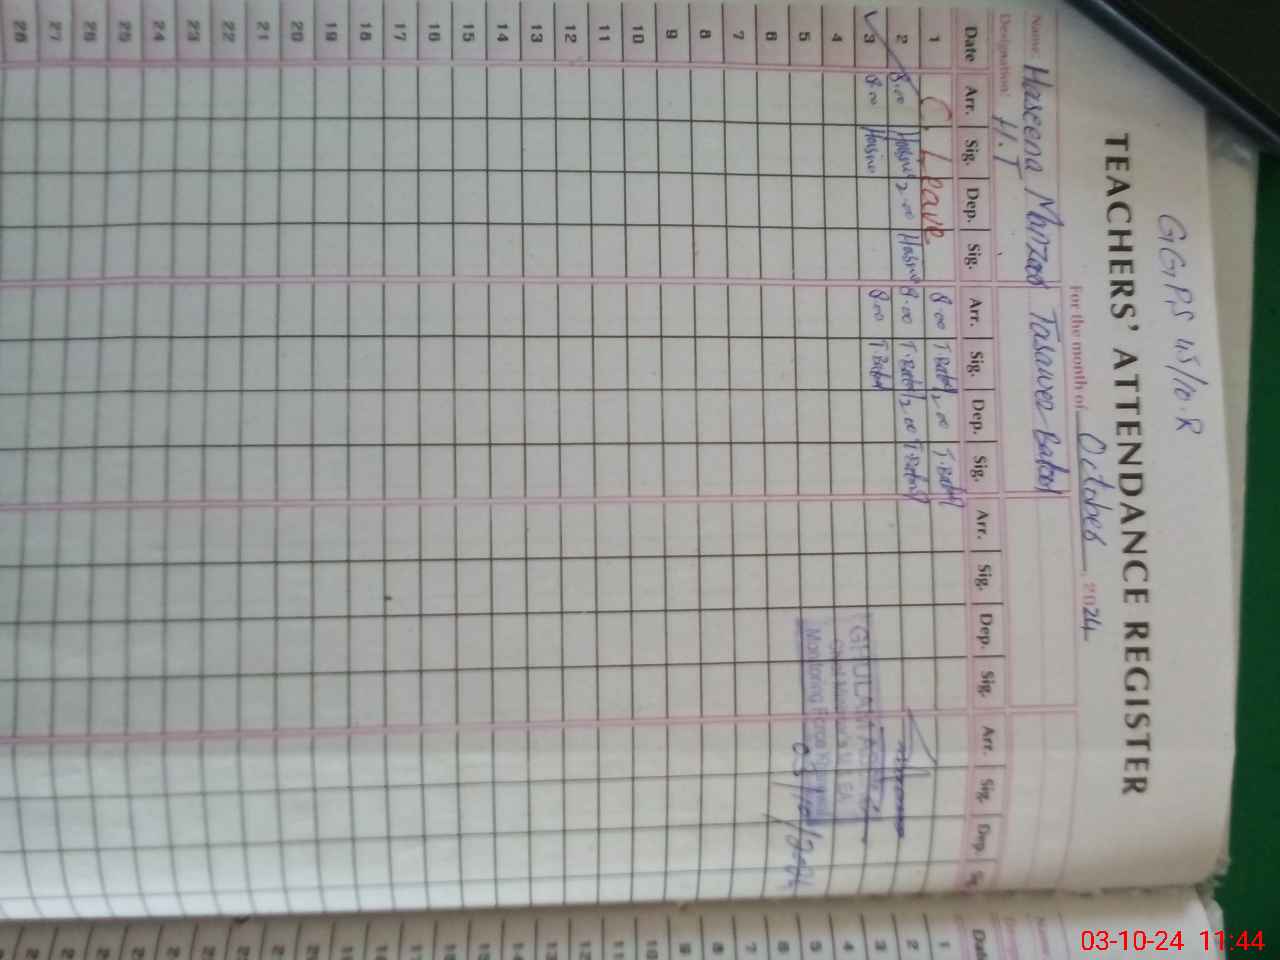 GGPS 45/10.R
TEACHERS' ATTENDANCE REGISTER
For the month of October, 2024
Name Haseena Manzoor Tasawer Batool
Designation H.T
Date Arr. Sig. Dep. Sig. Arr. Sig. Dep. Sig. Arr. Sig. Dep. Sig. Arr. Sig. Dep.
1 C. Leave 8.00 T.Batool 2.00 T.Batool
2 8.00 Hasina 2.00 Hasina 8.00 T.Batool 2.00 T.Batool
3 8.00 Hasina 8.00 T.Batool
4
5
6
7
8
9
10
11
12
13
14
15
16
17
18
19
20
21
22
23
24
25
26
27
28
GHULAM
Monitoring Force
03/10/2024
Date
1
2
3
4
5
6
7
8
9
10
11
12
13
03-10-24 11:44